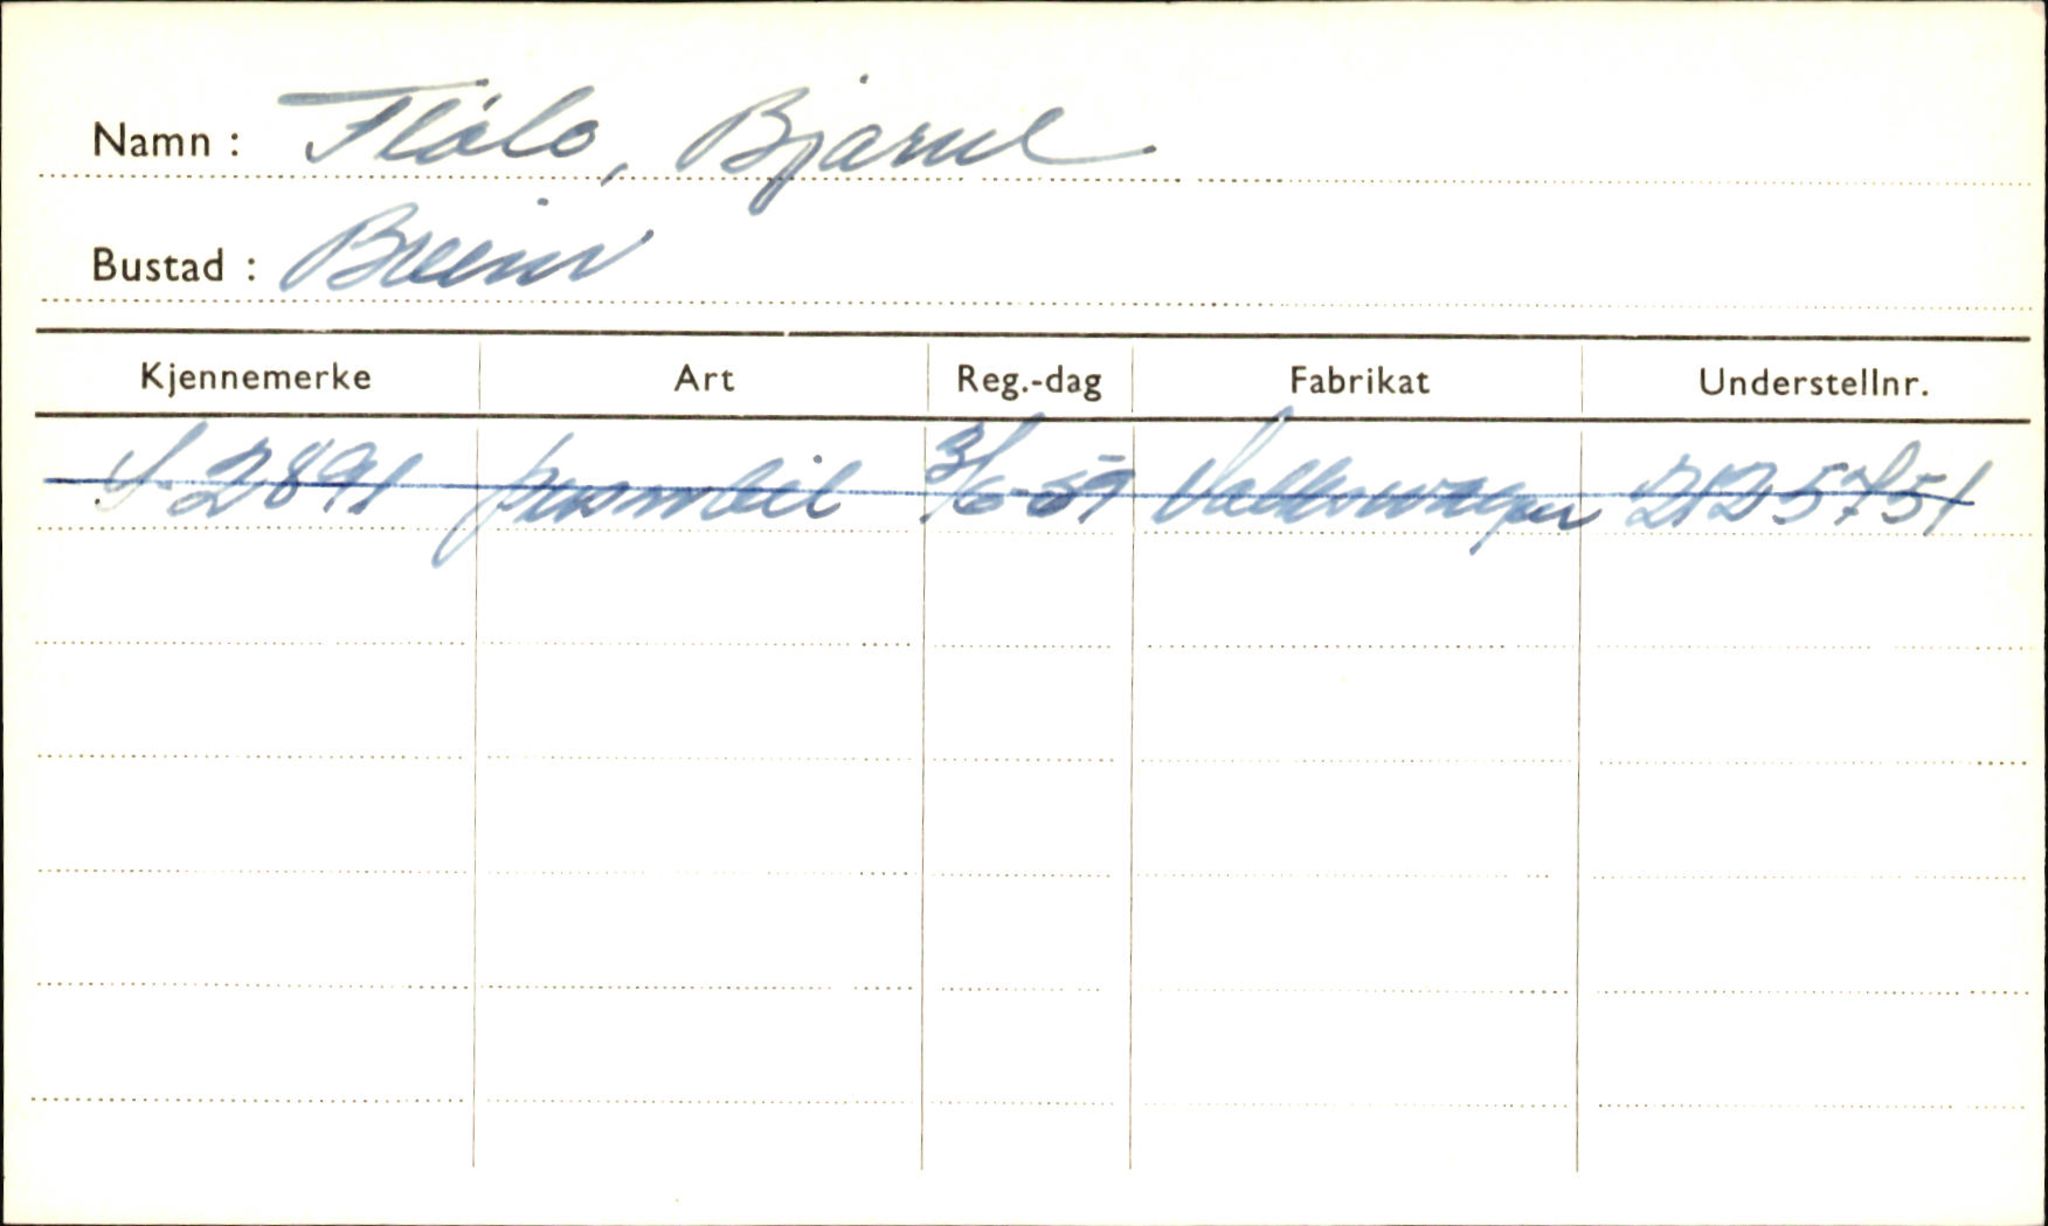 Namn : Flölo, Bjarne
Bustad : Breim
Kjennemerke Art Reg.-dag Fabrikat Understellnr.
S-2891 personbil 3/6-59 Volkswagen 2125751